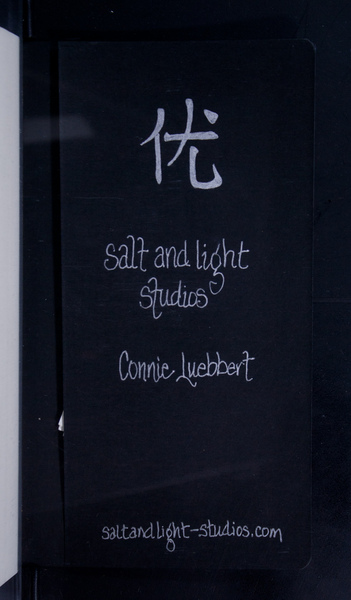 优
salt and light
studios
Connie Luebbert
saltandlight-studios.com